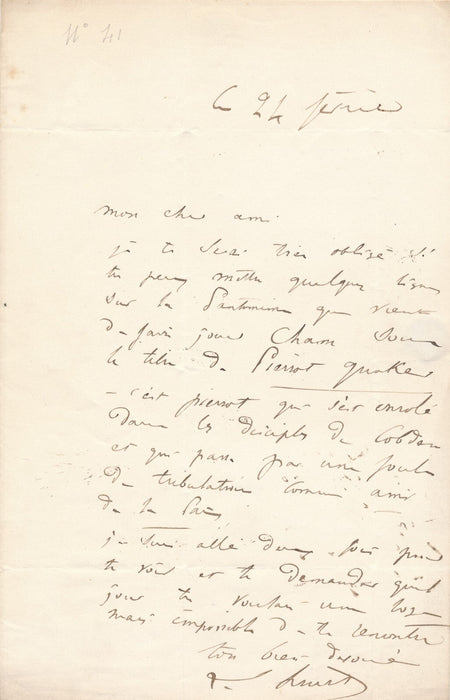 N° 41
le 24 février
mon cher ami
je te serai très obligé si
tu peux mettre quelques lignes
sur la Pantomime que vient
de faire jouer Cham sous
le titre de Pierrot quaker
- c'est pierrot qui s'est enrolé
dans les disciples de Cobden
et qui passe par une foule
de tribulations comme ami
de la Paix
je suis allé deux fois pour
te voir et te demander quel
jour tu voulais une loge
mais impossible de te rencontrer
ton bien dévoué